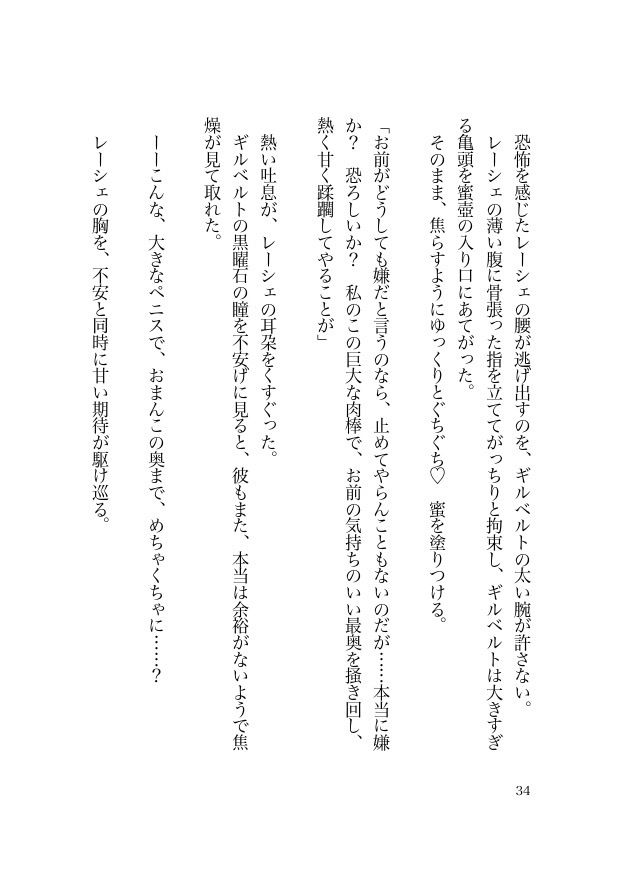 恐怖を感じたレーシェの腰が逃げ出すのを、ギルベルトの太い腕が許さない。
レーシェの薄い腹に骨張った指を立ててがっちりと拘束し、ギルベルトは大きすぎ
る亀頭を蜜壺の入り口にあてがった。
そのまま、焦らすようにゆっくりとぐちぐち♡　蜜を塗りつける。
「お前がどうしても嫌だと言うのなら、止めてやらんこともないのだが……本当に嫌
か？　恐ろしいか？　私のこの巨大な肉棒で、お前の気持ちのいい最奥を掻き回し、
熱く甘く蹂躙してやることが」
熱い吐息が、レーシェの耳朶をくすぐった。
ギルベルトの黒曜石の瞳を不安げに見ると、彼もまた、本当は余裕がないようで焦
燥が見て取れた。
ーーこんな、大きなペニスで、おまんこの奥まで、めちゃくちゃに……？
レーシェの胸を、不安と同時に甘い期待が駆け巡る。
34